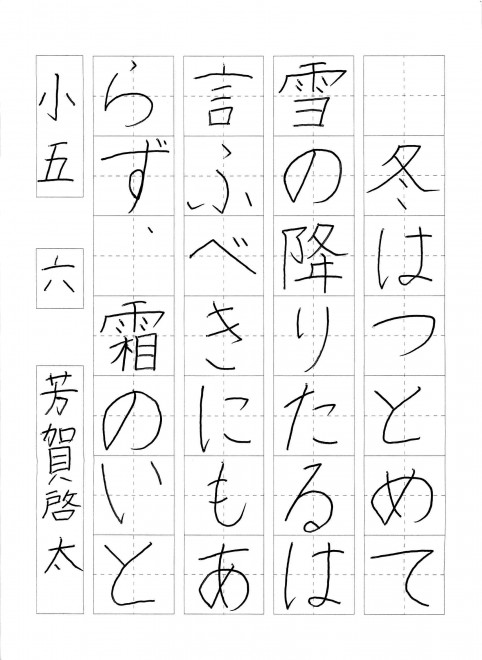 冬はつとめて
雪の降りたるは
言ふべきにもあ
らず、霜のいと
小五 六 芳賀啓太